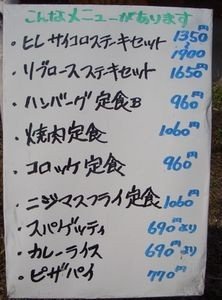 こんなメニューがあります
・ヒレサイコロステーキセット 1350円
1900
・リブロースステーキセット 1650円
・ハンバーグ定食B 960円
・焼肉定食 1060円
・コロッケ定食 960円
・ニジマスフライ定食 1060円
・スパゲッティ 690円より
・カレーライス 690円より
・ピザパイ 770円